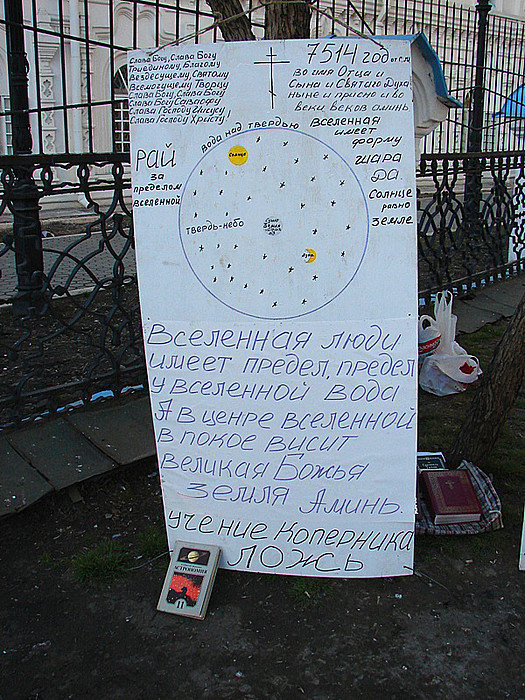 Слава Богу, Слава Богу
Триединому, Благому
Вездесущему, Святому
Всемогущему Творцу
Слава Богу, Слава Богу
Слава Богу Саваофу
Слава Господу
Слава Господу Христу!
7514 год от С.М.
Во имя Отца и
Сына и Святаго Духа,
ныне и присно и во
веки веков аминь
Вселенная
имеет
форму
шара
да.
Солнце
равно
земле
Рай
за
пределом
вселенной
Вода над твердью
Солнце
Твердь-небо
Земля
Луна
Вселенная люди
имеет предел, предел
у вселенной вода
А в ценре вселенной
в покое висит
великая Божья
земля Аминь.
учение Коперника
ложсь
Астрономия
11